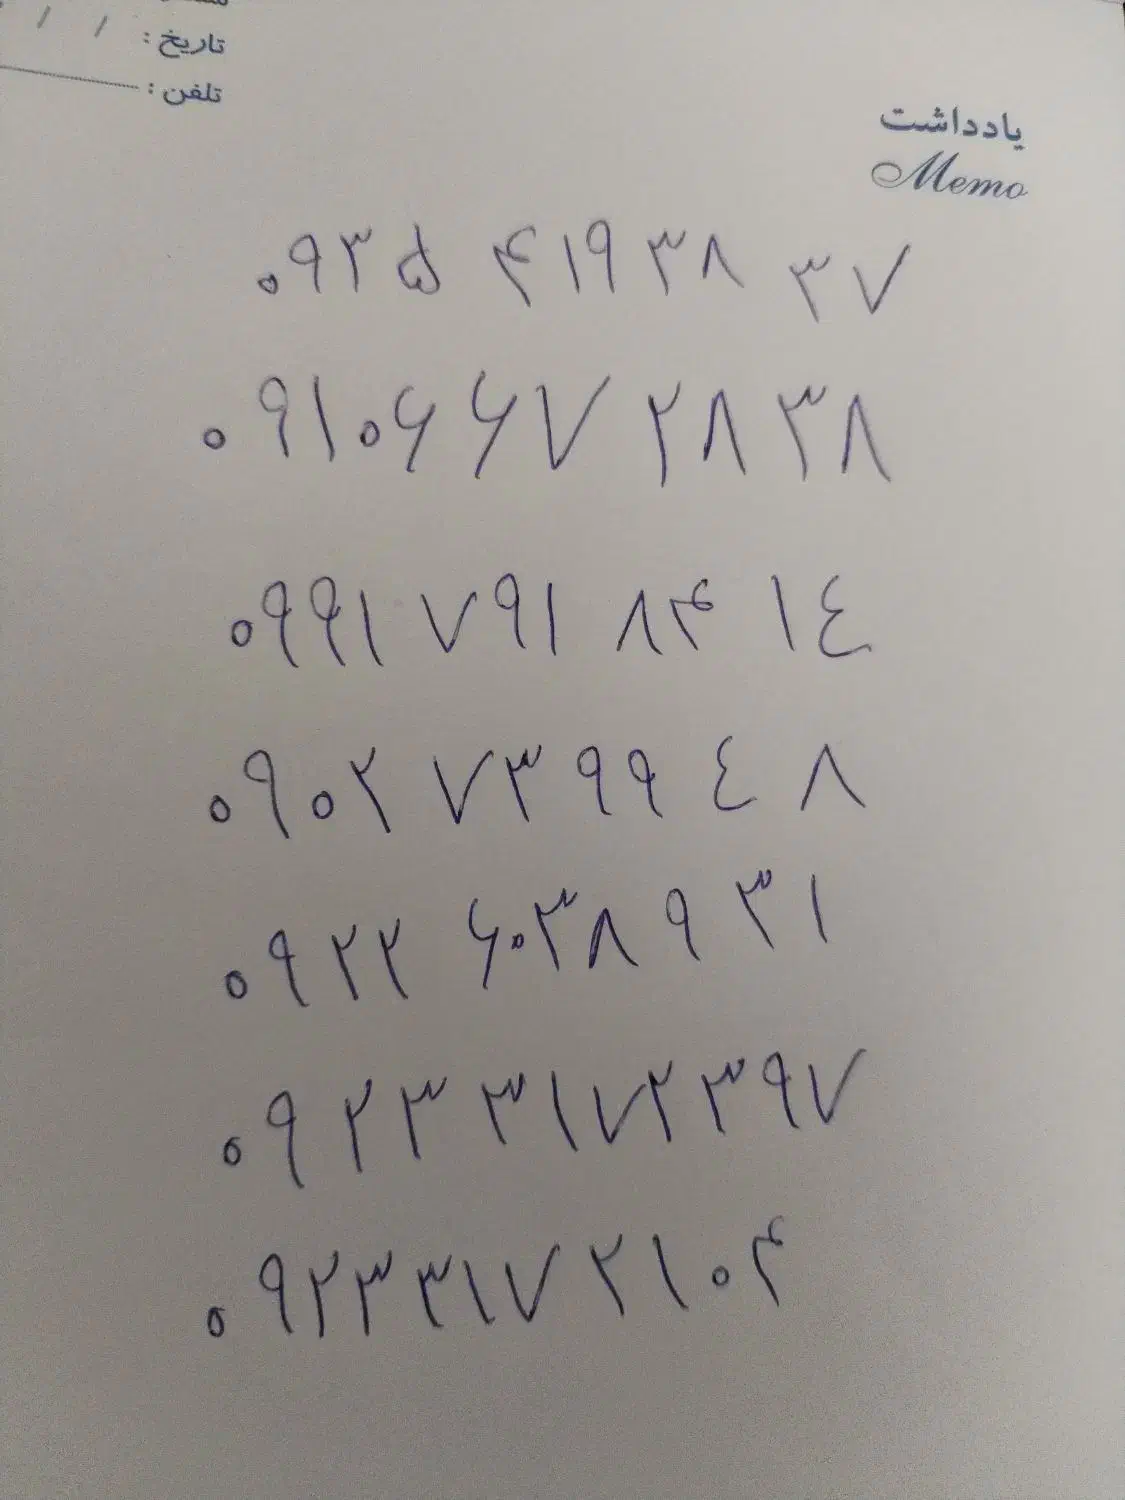 تاریخ : / /
تلفن :
یادداشت
Memo
۰۹۳۵ ۴۱۹ ۳۸ ۳۷
۰۹۱۰۶۶۷ ۲۸ ۳۸
۰۹۹۱ ۷۹۱ ۸۴ ۱۴
۰۹۰۲ ۷۳۹۹ ۴۸
۰۹۲۲ ۶۰۳۸۹ ۳۱
۰۹۲۳ ۳۱۷۲۳۹۷
۰۹۲۳۳۱۷ ۲۱۰۴